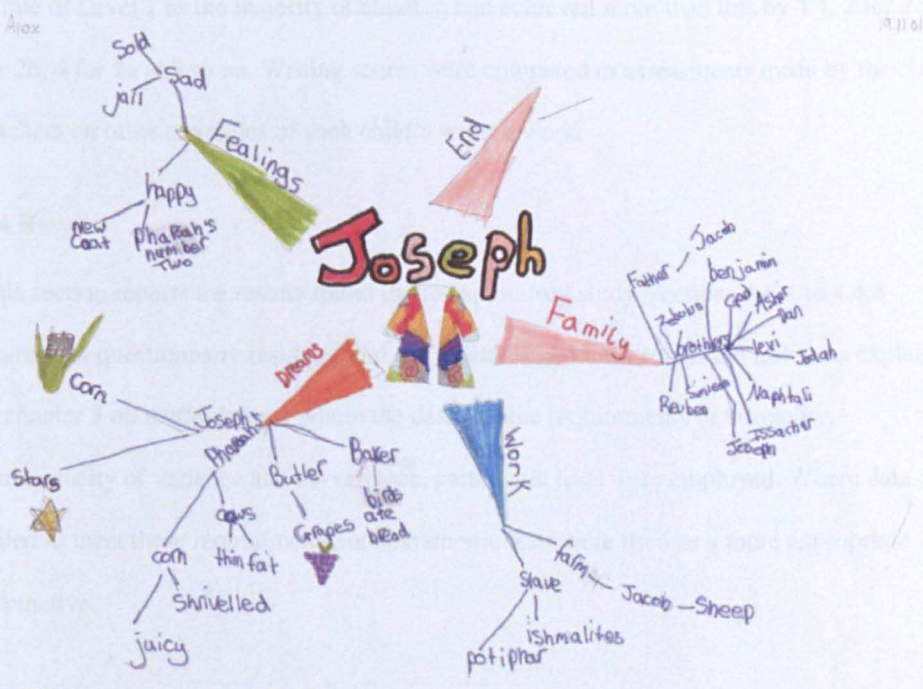 Alex
Sold
Sad
jail
Fealings
happy
New
Coat
Pharoah's
number
Two
End
Joseph
Family
Father
Jacob
benjamin
Gad
Asher
Dan
levi
Judah
Naphtali
Issacher
Joseph
Simieon
Reuben
brothers
Dreams
Joseph
Corn
Stars
Pharoah
corn
Shrivelled
juicy
cows
thin fat
Butler
Grapes
Baker
birds
ate
bread
Work
farm
Jacob
Sheep
Slave
Ishmalites
potiphar